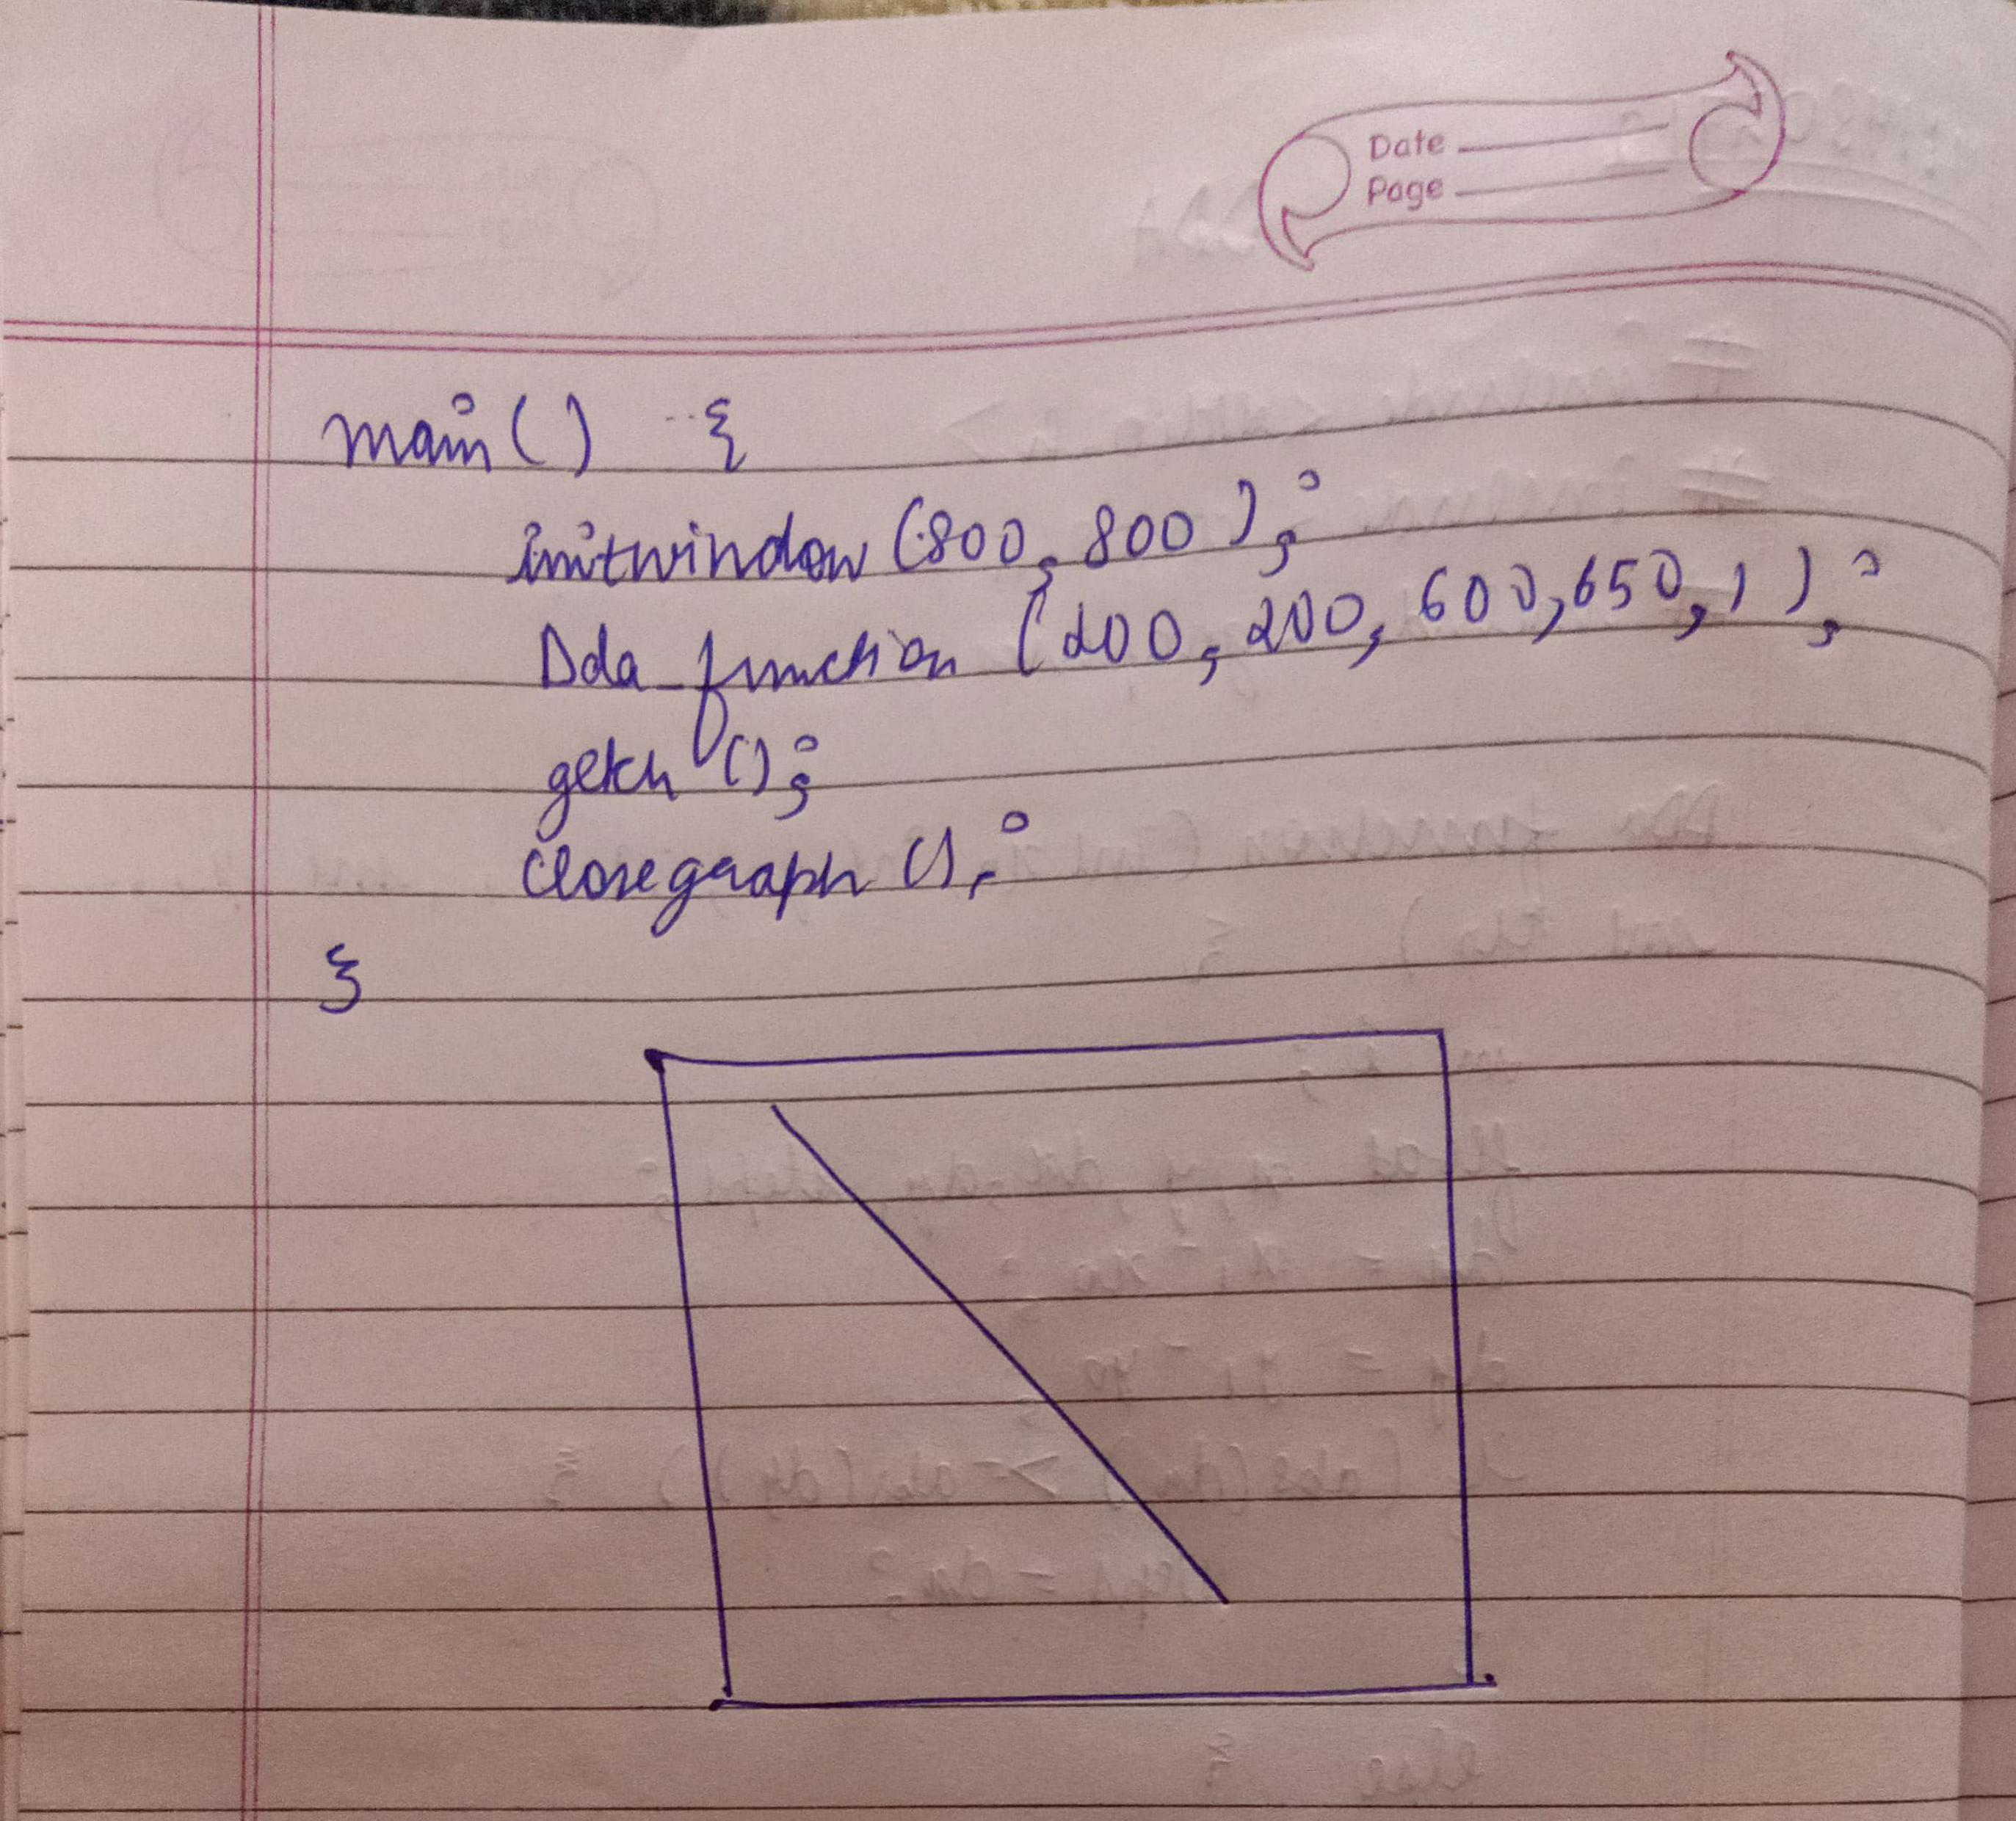 Date
Page
main() {
initwindow (800, 800);
Dda_function (200, 200, 600, 650, 1);
getch ();
closegraph ();
}